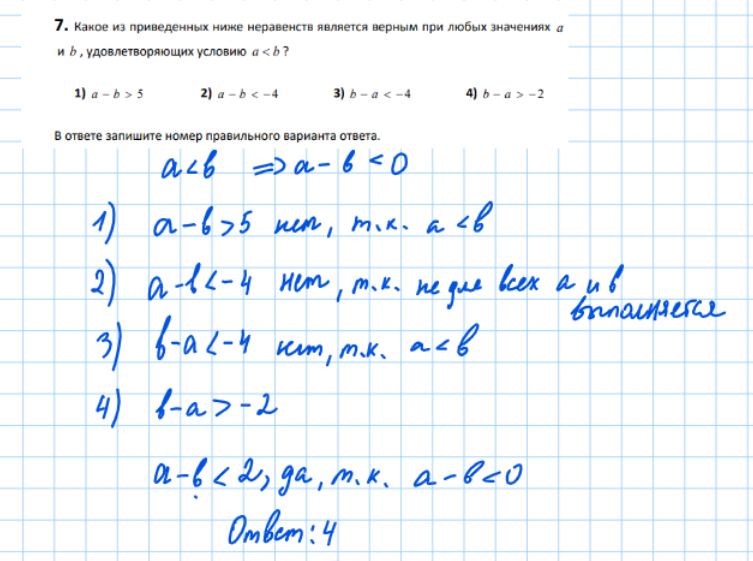 7. Какое из приведенных ниже неравенств является верным при любых значениях a
и b, удовлетворяющих условию a < b ?
1) a − b > 5 2) a − b < −4 3) b − a < −4 4) b − a > −2
В ответе запишите номер правильного варианта ответа.
a<b ⇒ a − b < 0
1) a−b>5 нет, т.к. a<b
2) a−b<−4 нет, т.к. не для всех a и b
выполняется
3) b−a<−4 нет, т.к. a<b
4) b−a>−2
a−b<2, да, т.к. a−b<0
Ответ: 4